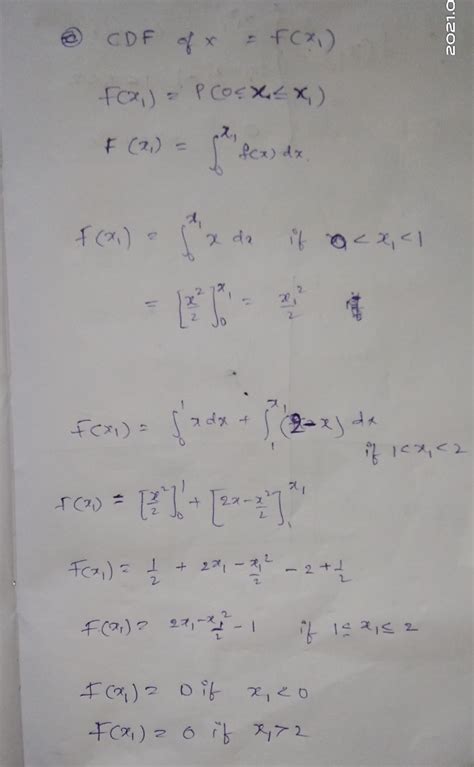 2021.0
@ CDF of x = F(x₁)
F(x₁) = P(0≤x≤x₁)
F(x₁) = ∫₀^x₁ f(x) dx.
F(x₁) = ∫₀^x₁ x dx if 0 < x₁ < 1
= [x²/2]₀^x₁ = x₁²/2
F(x₁) = ∫₀^1 x dx + ∫₁^x₁ (2-x) dx
if 1<x₁<2
F(x₁) = [x²/2]₀^1 + [2x - x²/2]₁^x₁
F(x₁) = 1/2 + 2x₁ - x₁²/2 - 2 + 1/2
F(x₁) = 2x₁ - x₁²/2 - 1 if 1≤x₁≤2
F(x₁) = 0 if x₁<0
F(x₁) = 0 if x₁>2